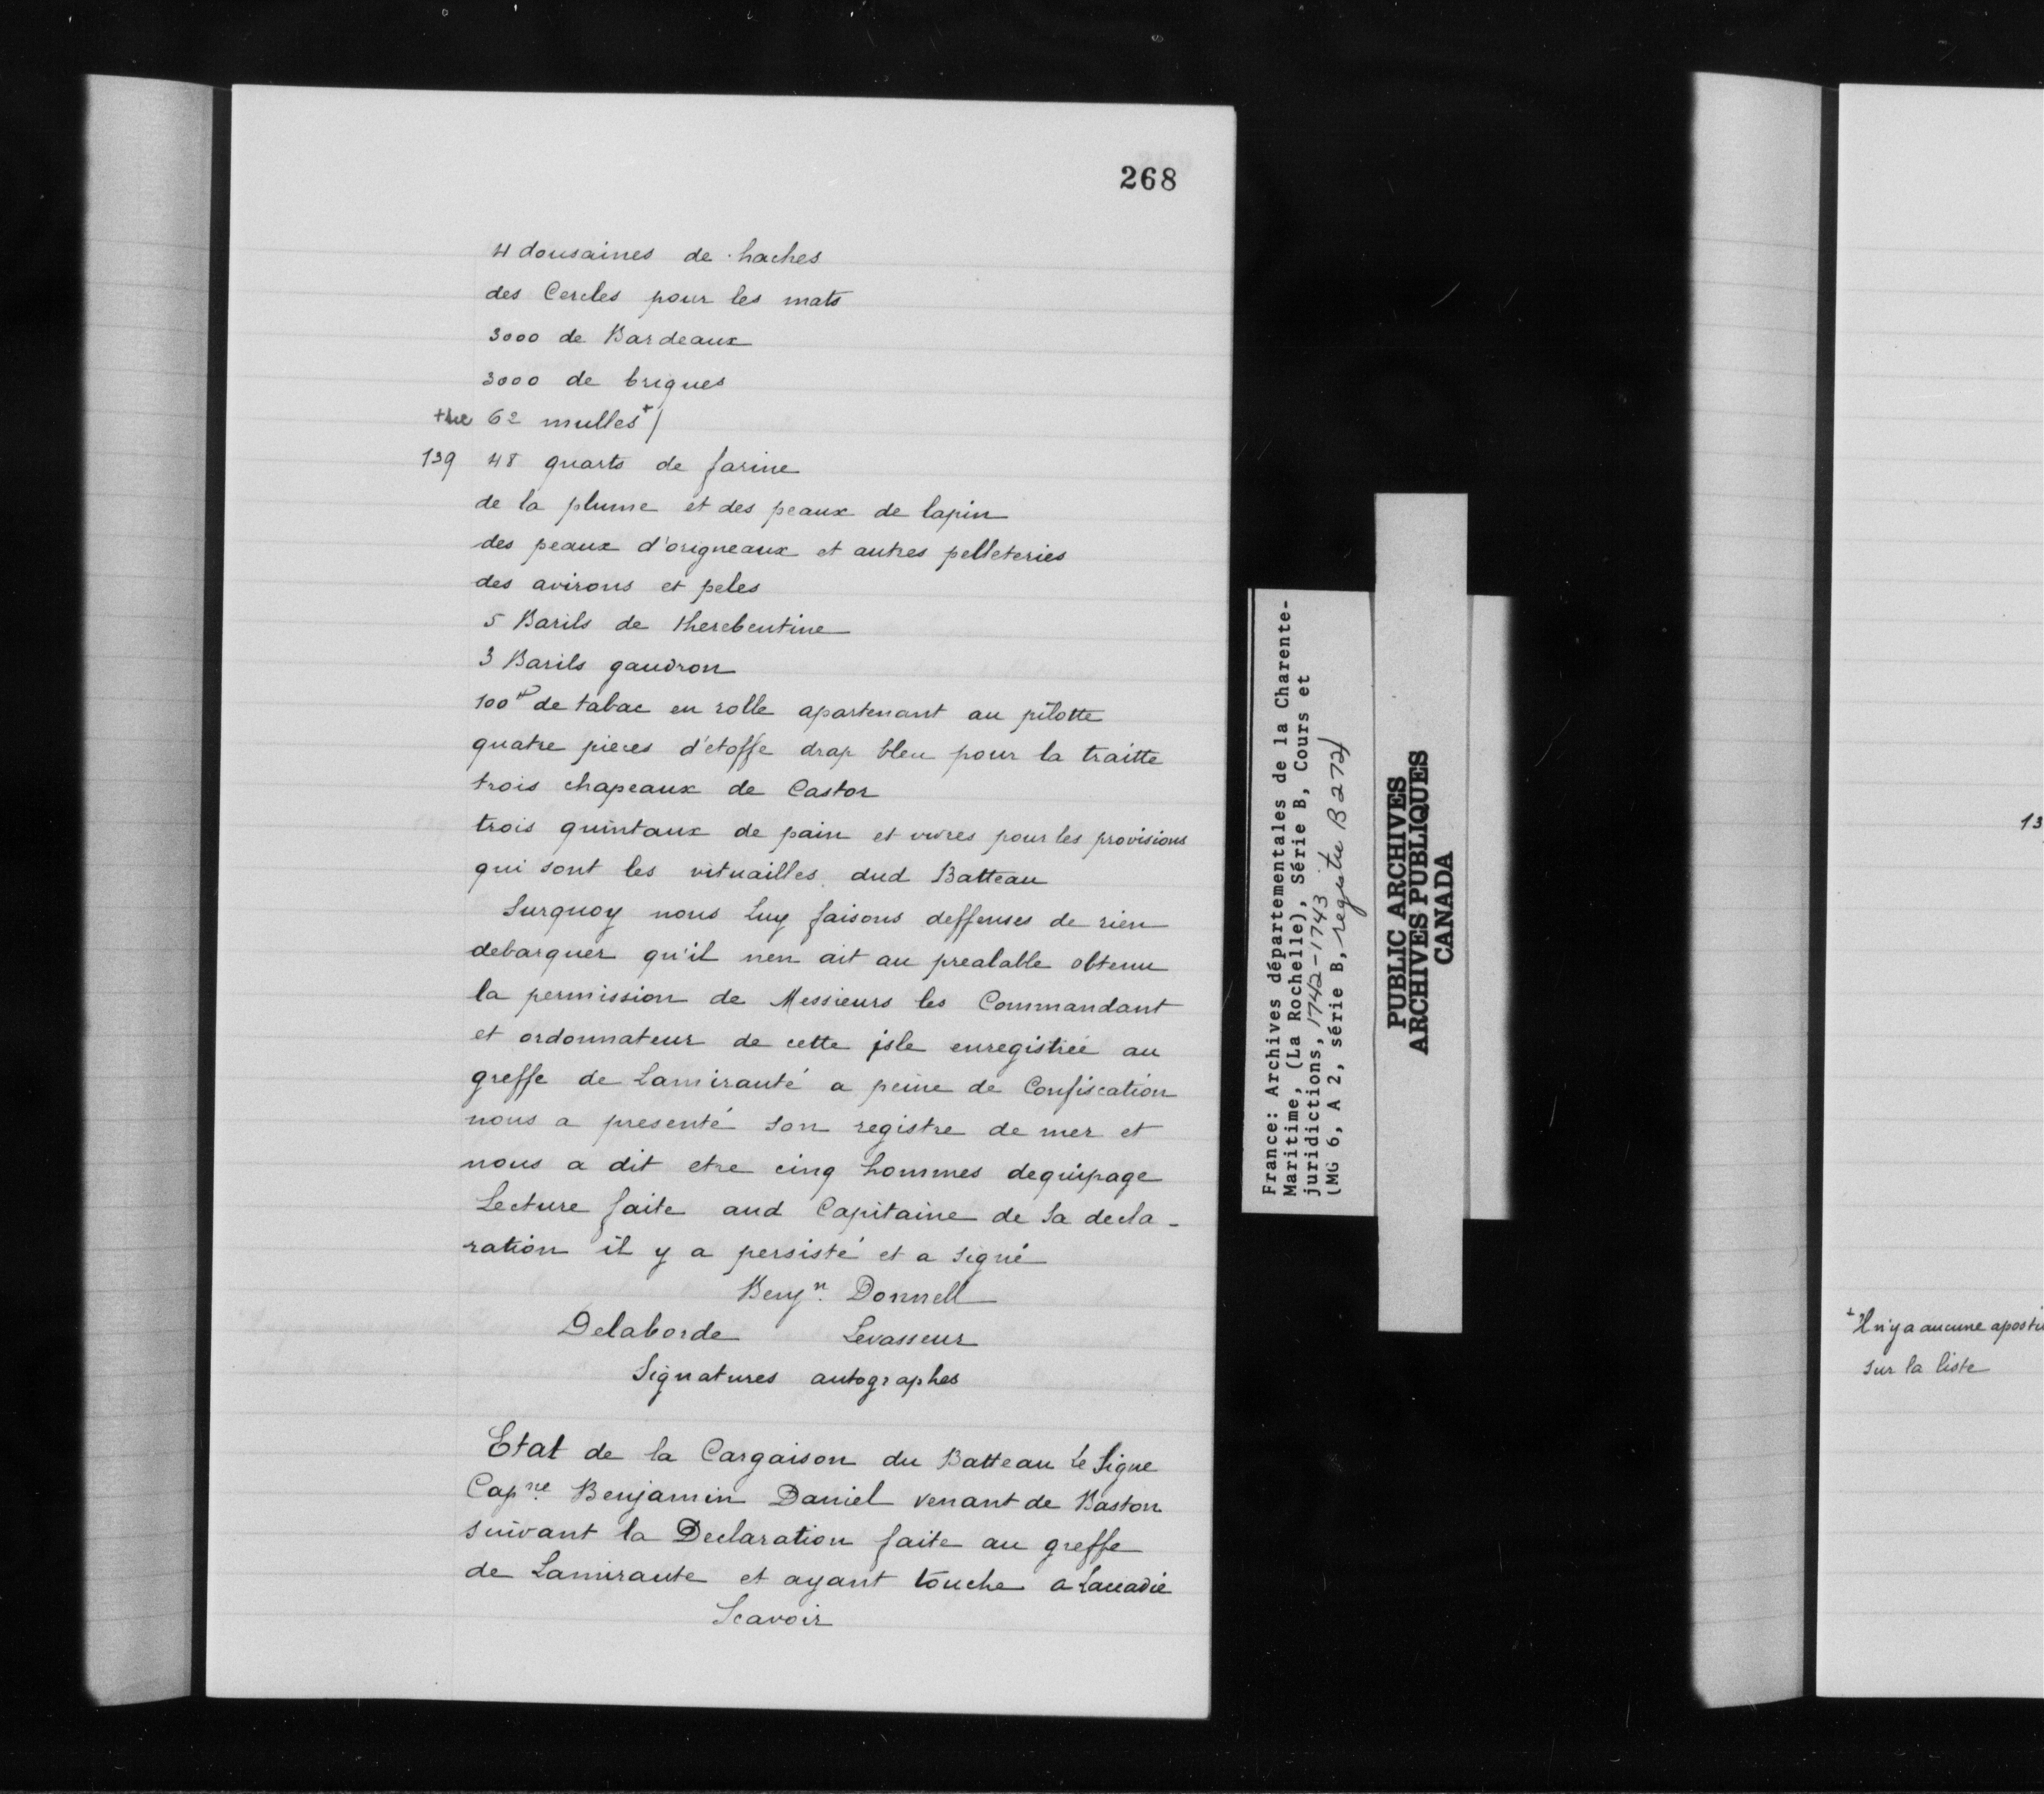 268
4 dousaines de haches
des Cercles pour les mats
3000 de Bardeaux
3000 de briques
62 mulles+/
139 48 quarts de farine
de la plume et des peaux de lapin
des peaux d'origneaux et autres pelleteries
des avirons et peles
5 Barils de therebentine
3 Barils gaudron
100# de tabac en rolle apartenant au pilotte
quatre pieces d'etoffe drap bleu pour la traitte
trois chapeaux de Castor
trois quintaux de pain et vivres pour les provisions
qui sont les vituailles dud Batteau
Surquoy nous Luy faisons deffenses de rien
debarquer qu'il nen ait au prealable obtenu
la permission de Messieurs les Commandant
et ordonnateur de cette isle enregistrée au
greffe de Lamirauté a peine de Confiscation
nous a presenté son registre de mer et
nous a dit etre cinq hommes dequipage
Lecture faite aud Capitaine de sa decla-
ration il y a persisté et a signé
Benjn. Donnell
Delaborde Levasseur
Signatures autographes
Etat de la Cargaison du Batteau Le Signe
Capne. Benjamin Daniel venant de Baston
suivant la Declaration faite au greffe
de Lamiraute et ayant touche a Lacadie
Scavoir
France: Archives départementales de la Charente-
Maritime, (La Rochelle), Série B, Cours et
juridictions, 1742-1743
(MG 6, A 2, série B, registre B 272)
PUBLIC ARCHIVES
ARCHIVES PUBLIQUES
CANADA
13
+ Il n'y a aucune aposti
sur la liste